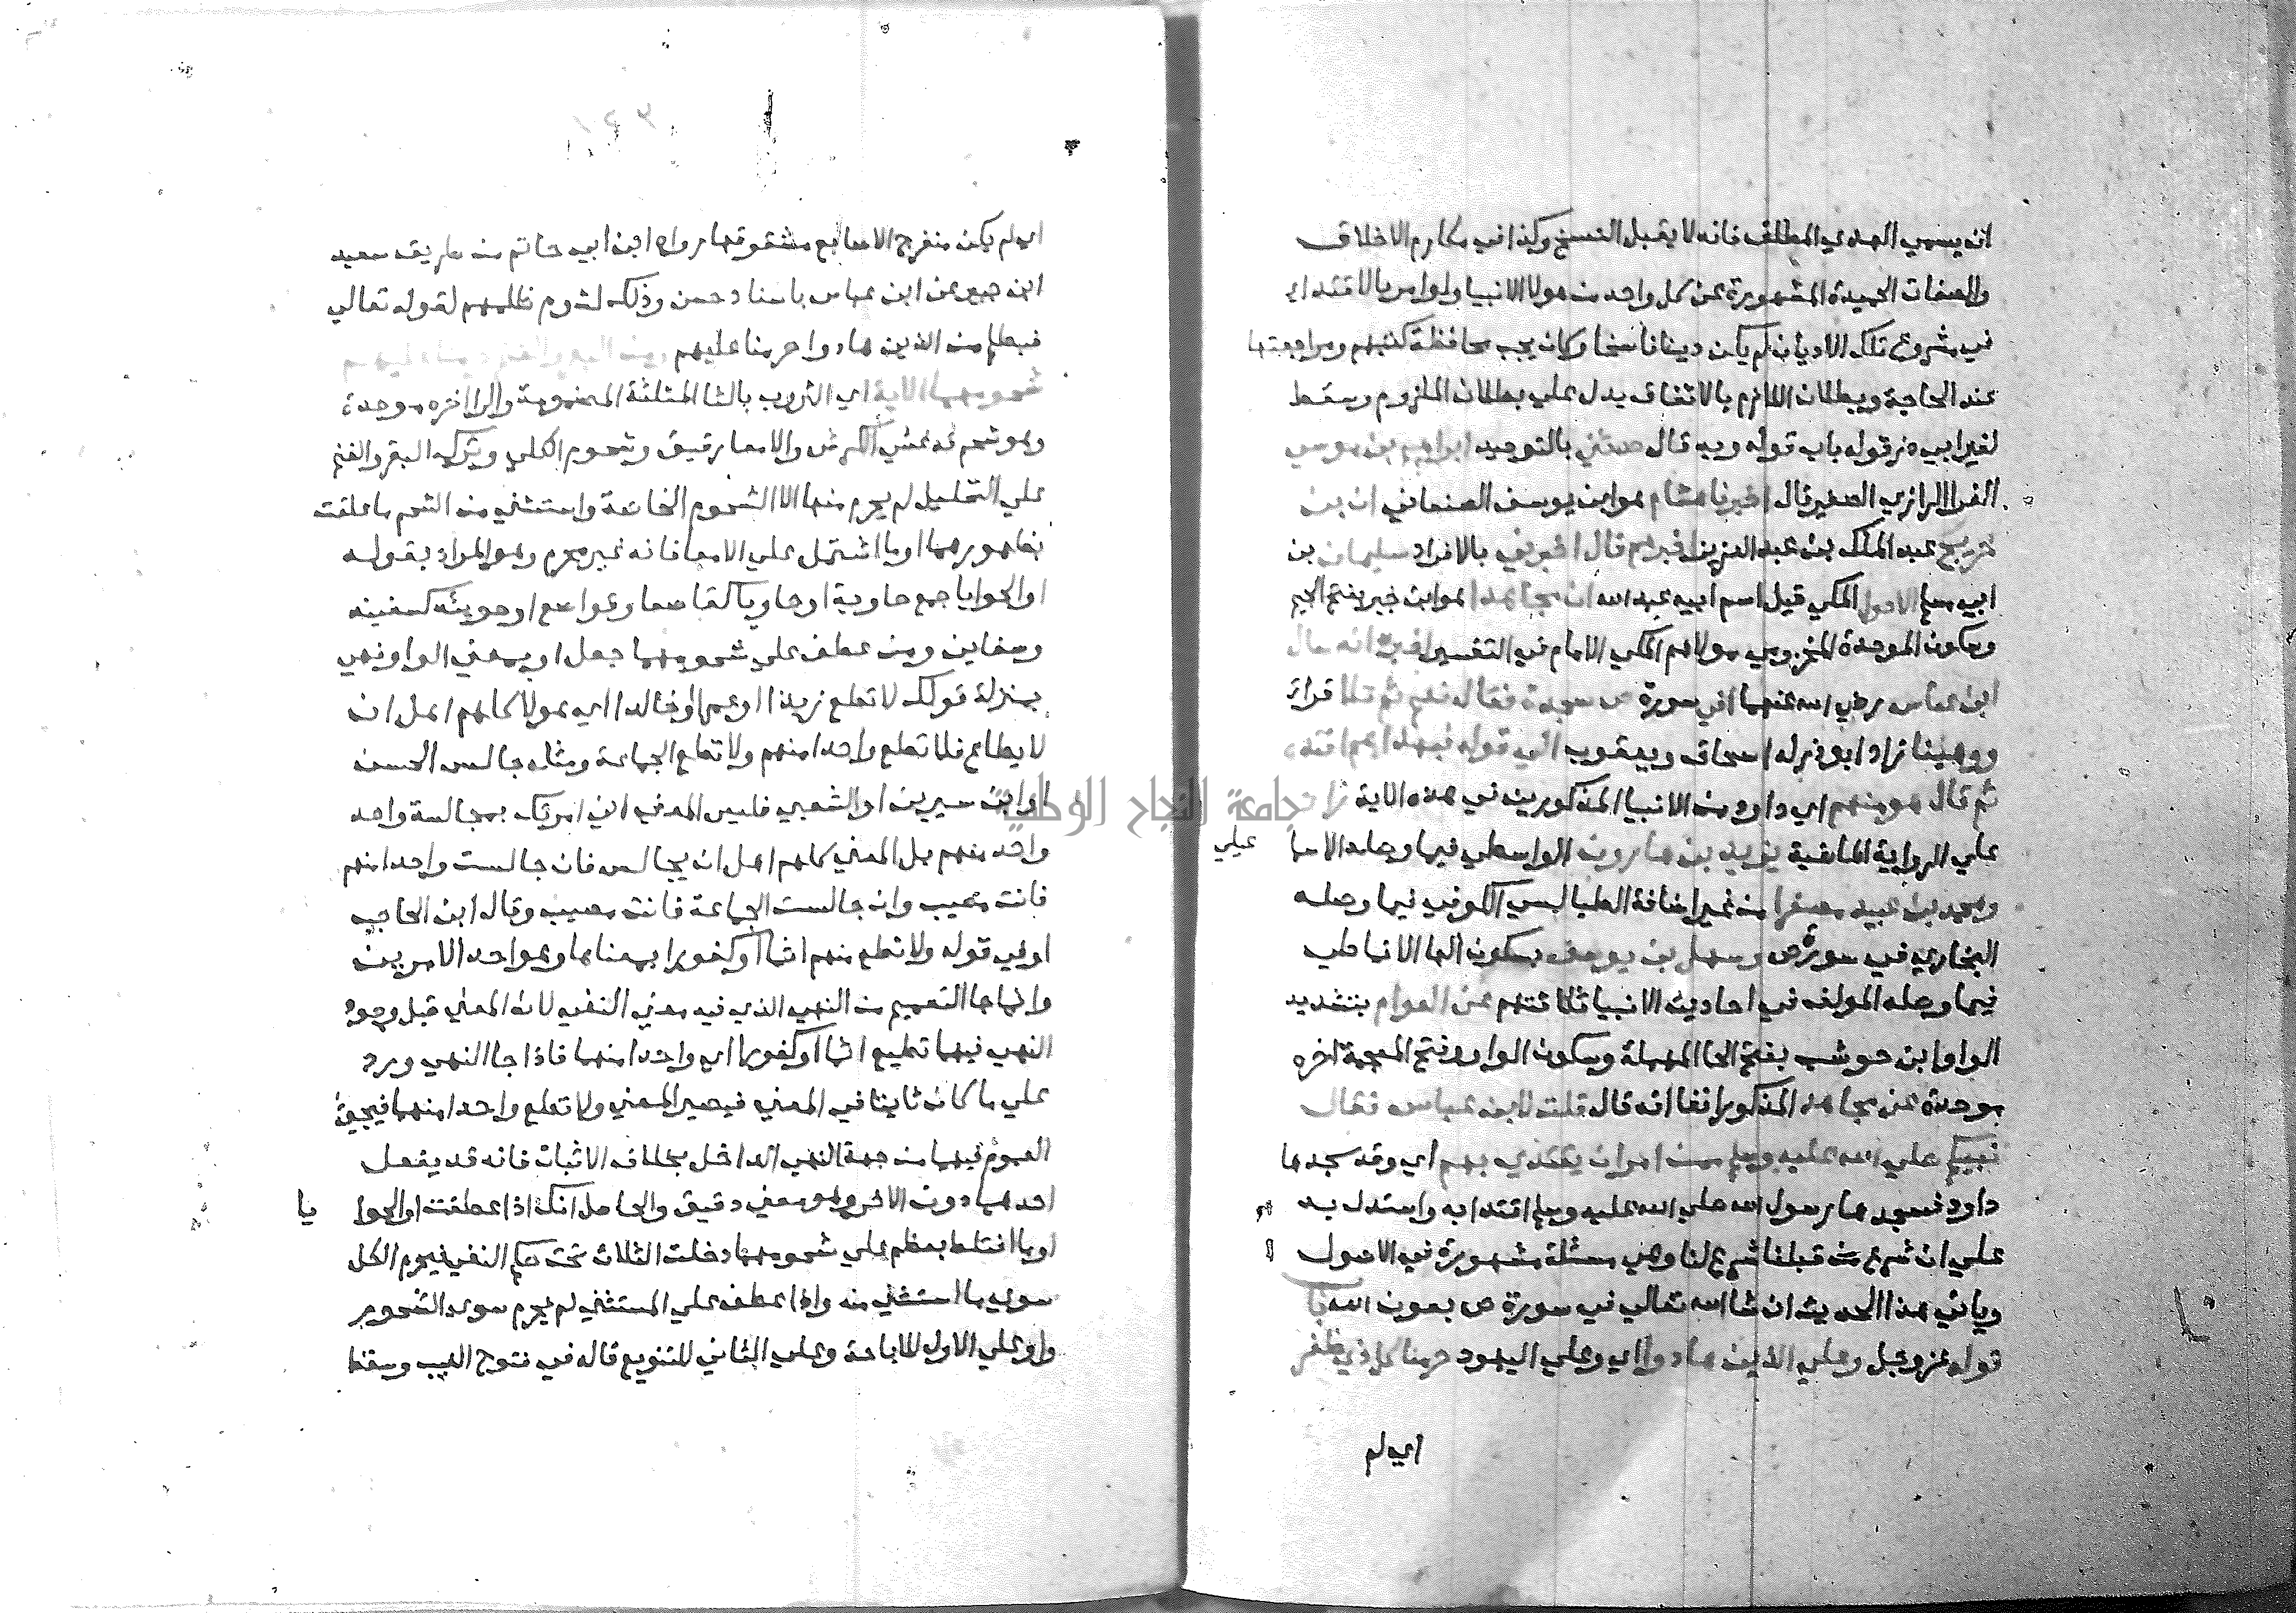 انه يسمي الهدي المطلق فانه لا يقبل النسخ وكذا في مكارم الاخلاق
والصفات الحميدة المشهورة عن كل واحد من هولا الانبيا ولو امر بالاقتدا
في مشروع تلك الاديان لم يكن دينا ناسخا وكان يجب محافظة كتبهم ومراجعتها
عند الحاجة وبطلان اللازم بالاتفاق يدل علي بطلان الملزوم وسقط
لغير ابي ذر قوله باب قوله وبه قال حدثني بالتوحيد ابراهيم بن موسي
الفرا الرازي الصغير قال اخبرنا هشام هو ابن يوسف الصنعاني ان بن
جريج عبد الملك بن عبد العزيز اخبرهم قال اخبرني بالافراد سليمان بن
ابي مسلم الاحول المكي قيل اسم ابيه عبد الله ان مجاهدا هو ابن جبر بفتح الجيم
وسكون الموحدة المخزومي مولاهم المكي الامام في التفسير اخبره انه سال
ابن عباس رضي الله عنهما افي سورة ص سجدة فقال نعم ثم تلا قراة
ووهبنا زاد ابو ذر له اسحاق ويعقوب الي قوله فبهداهم اقتده
ثم قال هو منهم اي داود من الانبيا المذكورين في هذه الاية زاد
علي الرواية الماضية يزيد بن هارون الواسطي فيما وصله الاسما
عيلي
ومحمد بن عبيد مصغرا من غير اضافة الطيالسي الكوفي فيما وصله
البخاري في سورة ص وسهل بن يوسف بسكون الها الانماطي
فيما وصله المولف في احاديث الانبيا ثلاثتهم عن العوام بتشديد
الواو ابن حوشب بفتح الحا المهملة وسكون الواو وفتح المعجمة اخره
موحدة عن مجاهد المذكور انفا انه قال قلت لابن عباس فقال
نبيكم صلي الله عليه وسلم ممن امر ان يقتدي بهم اي وقد سجدها
داود فسجدها رسول الله صلي الله عليه وسلم اقتدا به واستدل به
علي ان شرع من قبلنا شرع لنا وهي مسئلة مشهورة في الاصول
وياتي هذا الحديث ان شا الله تعالي في سورة ص بعون الله باب
قوله عز وجل وعلي الذين هادوا اي وعلي اليهود حرمنا كل ذي ظفر
اي لم
اي لم يكن منفرج الاصابع مشقوقها رواه ابن ابي حاتم من طريق سعيد
ابن جبير عن ابن عباس باسناد حسن وذلك لشوم ظلمهم لقوله تعالي
فبظلم من الذين هادوا حرمنا عليهم
شحومهما الاية اي الثروب بالثا المثلثة المضمومة والرا اخره موحدة
وهو شحم قد غشي الكرش والامعا رقيق وشحوم الكلي وترك البقر والغنم
علي التحليل لم يحرم منها الا الشحوم الخاصة واستثني من الشحم ما علقت
بظهورهما او ما اشتمل علي الامعا فانه غير محرم وهو المراد بقوله
او الحوايا جمع حاوية او حاويا كقاصعا وقواصع او حوية كسفينه
وسفاين ومن عطف علي شحومهما جعل او بمعني الواو فهي
بمنزلة قولك لا تطع زيدا او عمرا او خالدا اي هولا كلهم اهل ان
لا يطاع فلا تطع واحدا منهم ولا تطع الجماعة ومثله جالس الحسن
او ابن سيرين او الشعبي فليس المعني اني امرتك بمجالسة واحد
واحد منهم بل المعني كلهم اهل ان يجالس فان جالست واحدا منهم
فانت مصيب وان جالست الجماعة فانت مصيب وقال ابن الحاجب
او في قوله ولا تطع منهم اثما او كفورا بمعناها وهو احد الامرين
وانما جا التعميم من النهي الذي فيه معني النفي لان المعني قبل وجود
النهي فيهما تطيع اثما او كفورا اي واحدا منهما فاذا جا النهي ورد
علي ما كان ثابتا في المعني فيصير المعني ولا تطع واحدا منهما فيجي
العموم فيهما من جهة النهي الداخل بخلاف الاثبات فانه قد يفعل
احدهما دون الاخر وهو معني دقيق والحاصل انك اذا عطفت او الحوا
يا
او ما اختلط بعظم علي شحومهما دخلت الثلاث تحت حكم النفي فيحرم الكل
سوي ما استثني منه واذا عطف علي المستثني لم يحرم سوي الشحوم
واو علي الاول للاباحة وعلي الثاني للتنويع قاله في فتوح الغيب وسقط
جامعة النجاح الوطنية